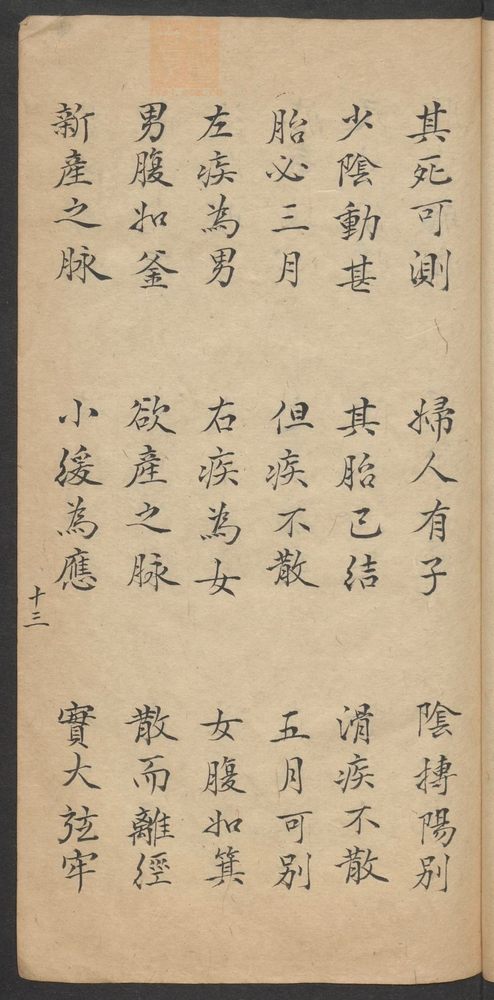 其死可測 婦人有子 陰摶陽別
少陰動甚 其胎已結 滑疾不散
胎必三月 但疾不散 五月可別
左疾為男 右疾為女 女腹如箕
男腹如釜 欲產之脉 散而離經
新產之脉 小緩為應 實大弦牢
十三